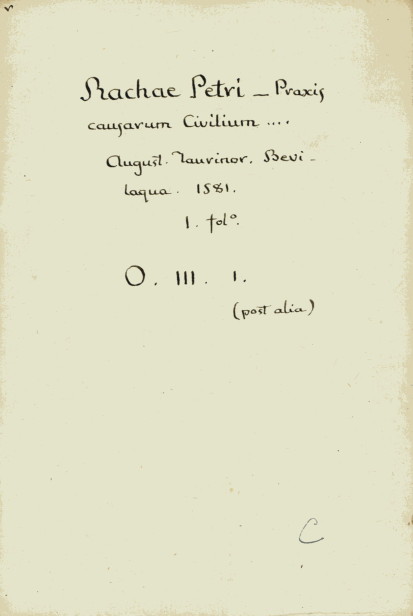 Rachae Petri – Praxis
causarum Civilium ....
August. Taurinor. Bevi-
laqua. 1581.
1. folº.
O. III. 1.
(post alia)
C